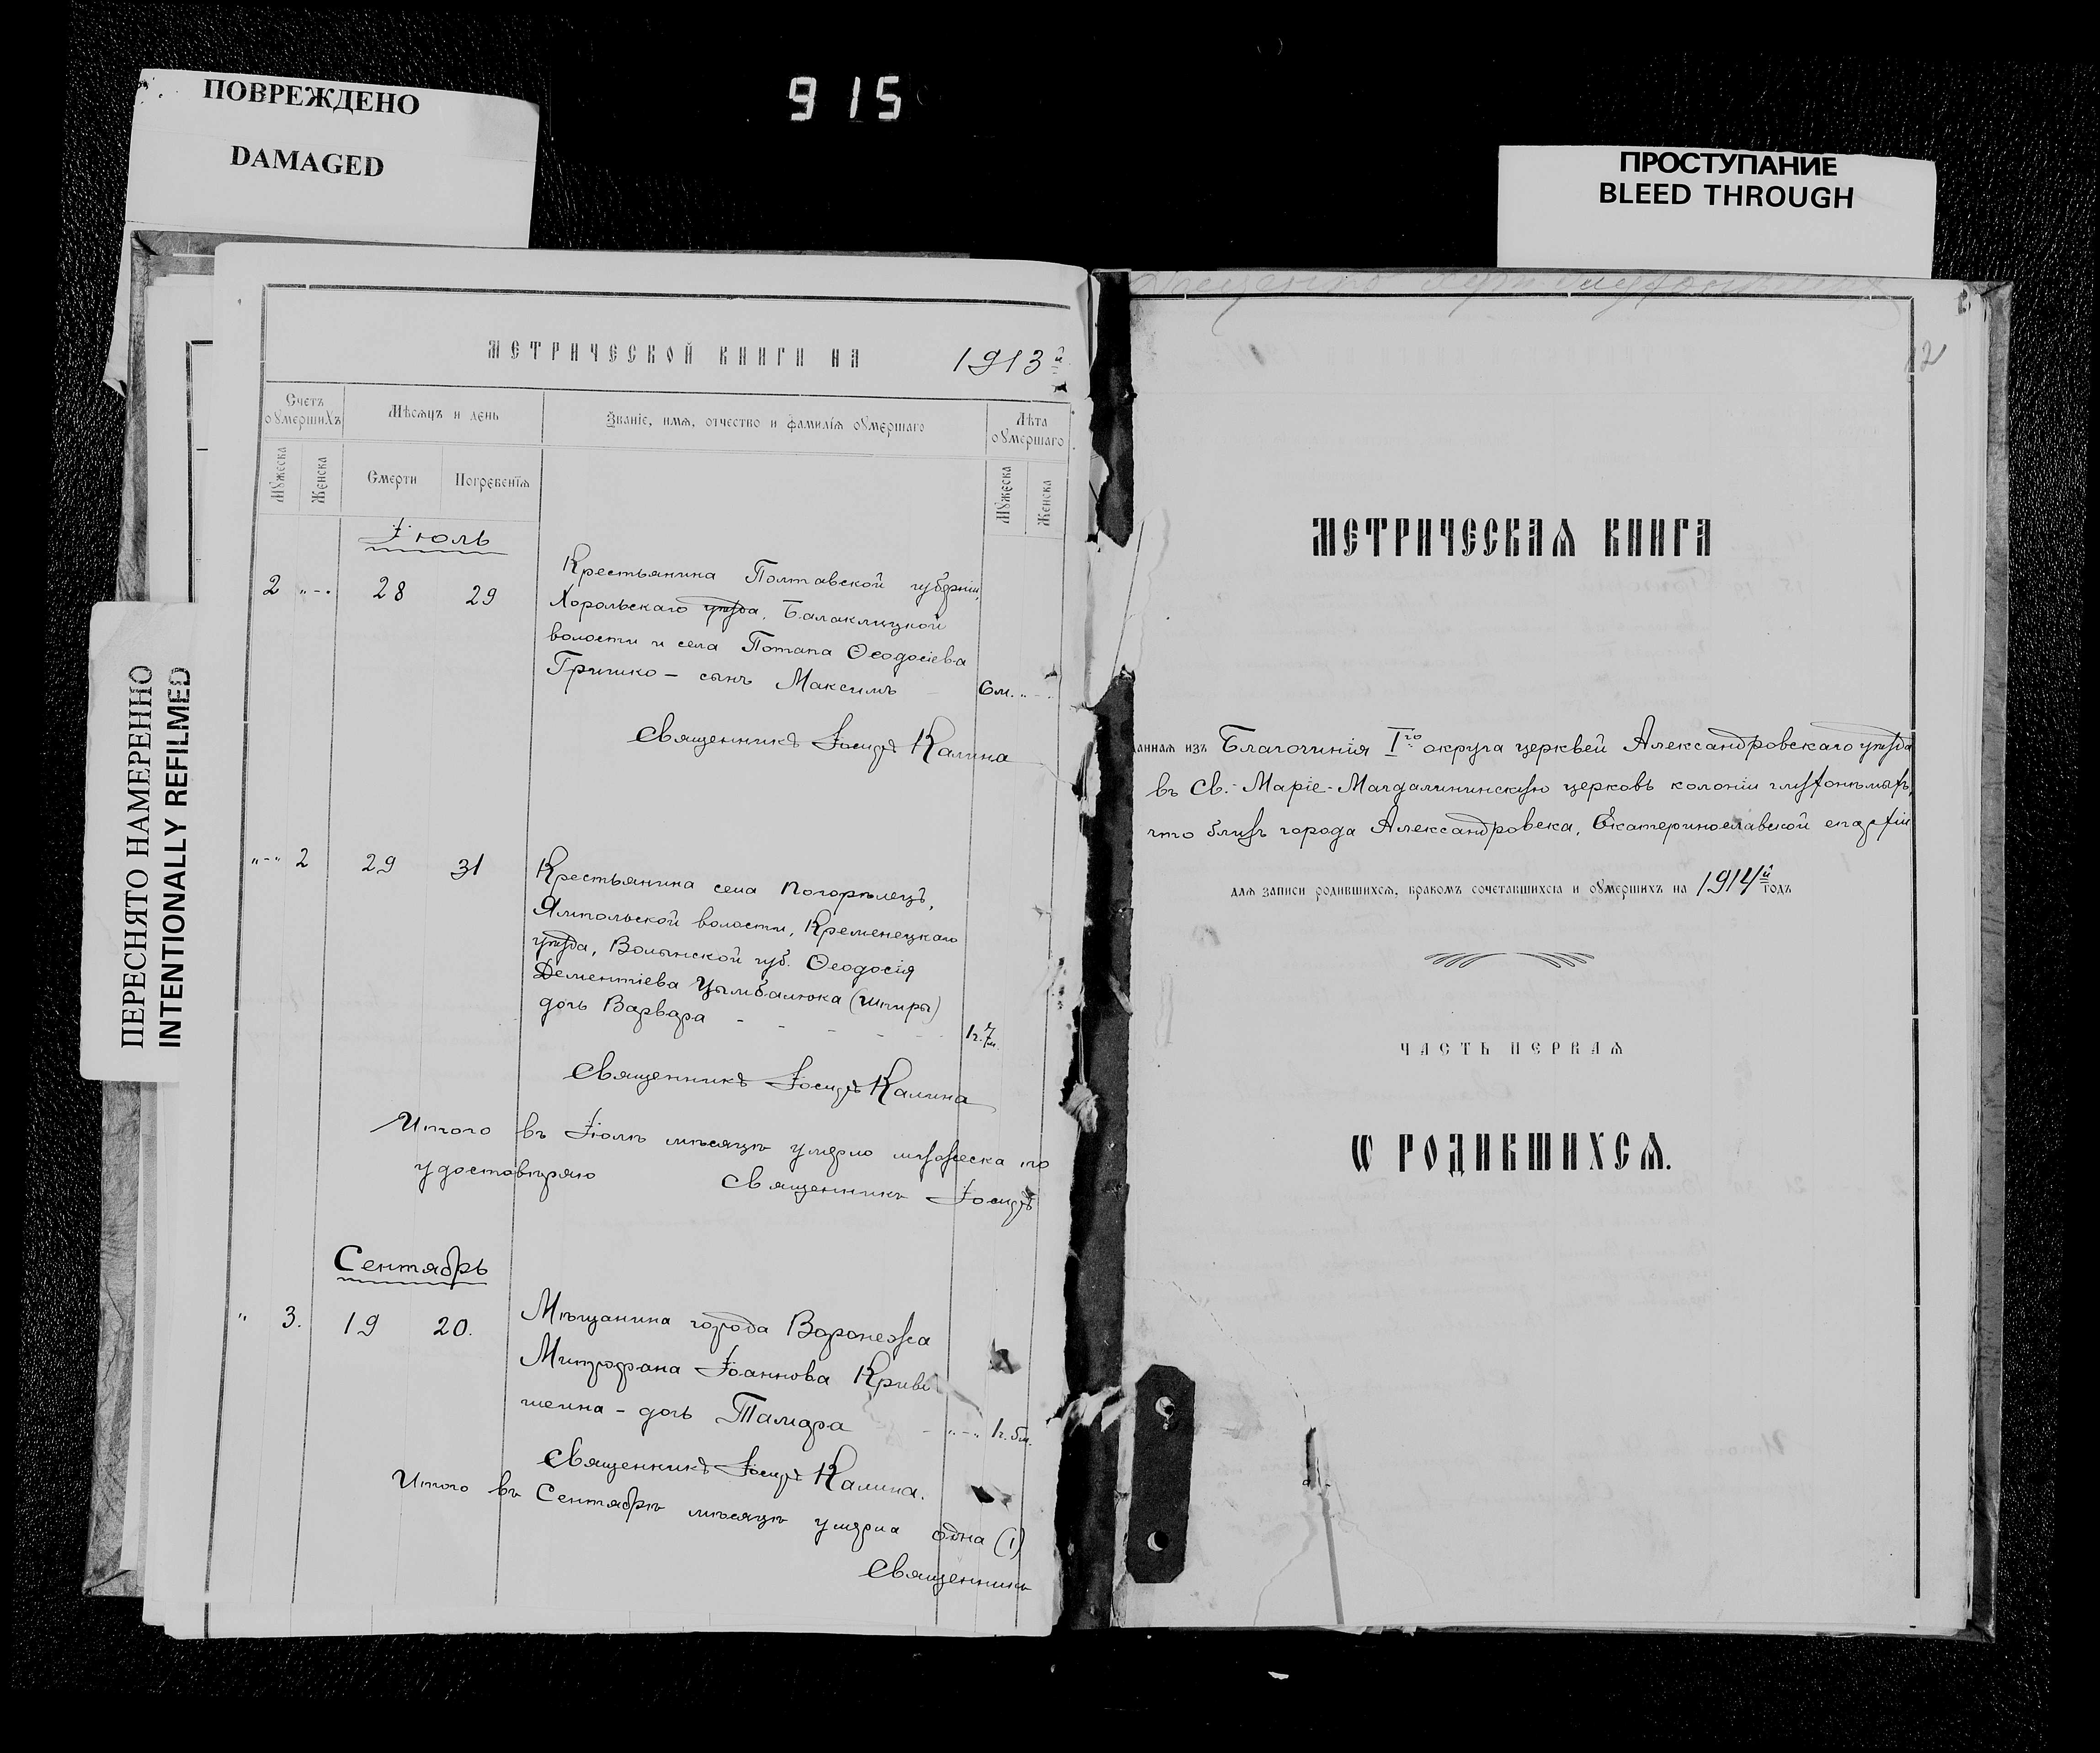 915
ПОВРЕЖДЕНО
DAMAGED
ПРОСТУПАНИЕ
BLEED THROUGH
ПЕРЕСНЯТО НАМЕРЕННО
INTENTIONALLY REFILMED
МЕТРИЧЕСКОЙ КНИГИ НА 1913й
Счетъ оумершихъ
Мѣсяцъ и день
Званіе, имя, отчество и фамилія оумершаго
Лѣта оумершаго
Мужеска
Женска
Смерти
Погребенія
Мужеска
Женска
Іюль
2 "-" 28 29
Крестьянина Полтавской губерніи,
Хорольскаго уѣзда, Балаклицкой
волости и села Потапа Ѳеодосіева
Гришко – сынъ Максимъ – 6м. "-"
Священникъ Іосифъ Калина
"-" 2 29 31
Крестьянина села Погорѣлецъ,
Ямпольской волости, Кременецкаго
уѣзда, Волынской губ. Ѳеодосія
Дементіева Цымбалюка (Шпиры)
дочь Варвара - - - - - 1г. 7м.
Священникъ Іосифъ Калина
Итого въ Іюлѣ мѣсяцѣ умерло мужеска по
удостовѣряю Священникъ Іосифъ
Сентябрь
" 3. 19 20.
Мѣщанина города Воронежа
Митрофана Іоаннова Криве
шеина – дочь Тамара - "-" 1г. 5м.
Священникъ Іосифъ Калина.
Итого въ Сентябрѣ мѣсяцѣ умерла одна (1)
Священникъ
12
МЕТРИЧЕСКАЯ КНИГА
анная изъ Благочинія Iго округа церквей Александровскаго уѣзда
въ Св.-Маріе-Магдалининскую церковь колоніи глухонѣмыхъ,
что близъ города Александровска, Екатеринославской епархіи
для записи родившихся, бракомъ сочетавшихся и оумершихъ на 1914й годъ
ЧАСТЬ ПЕРВАЯ
Ѡ РОДИВШИХСЯ.